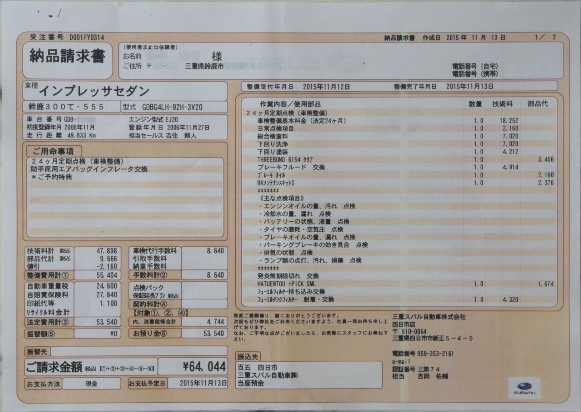 受注番号 D001FY0314
納品請求書 作成日 2015年11月13日 1/ 2
納品請求書
(使用者または依頼者)
お名前 様
ご住所 〒 三重県鈴鹿市
電話番号(自宅)
電話番号(携帯)
車種
インプレッサセダン
鈴鹿300て・555 型式 GDBG4LH-92H-3V20
車台番号 GDB- エンジン型式 EJ20
初度登録年月 2006年11月 登録年月日 2006年11月27日
走行距離 49,633 Km 担当セールス 吉住 頼人
整備受付年月日 2015年11月12日 整備完了年月日 2015年11月13日
ご用命事項
24ヶ月定期点検(車検整備)
助手席用エアバッグインフレータ交換
*ご予約特典
作業内容/使用部品 数量 技術料 部品代
24ヶ月定期点検(車検整備)
車検整備基本料金(法定24ヶ月) 1.0 18,252
日常点検項目 1.0 2,160
総合検査料 1.0 7,020
下回り洗浄 1.0 7,020
下回り塗装 1.0 4,212
THREEBOND 6154 1.0 3,456
ブレーキフルード 交換 1.0 4,914
ブレーキオイル 1.0 2,160
BKメンテナンスキットS 1.0 2,376
*******
《主な点検項目》
・エンジンオイルの量、汚れ 点検
・冷却水の量、漏れ 点検
・バッテリーの状態、液量 点検
・タイヤの磨耗・空気圧 点検
・ブレーキオイルの量、漏れ 点検
・パーキングブレーキの効き具合 点検
・排気の状態 点検
・ランプ類の点灯、汚れ、損傷 点検
*******
発炎筒期限切れ 交換
HATUENTOU +PICK SML 1.0 1,674
フューエルフィルター持ち込み交換
フューエルフィルター 脱着・交換 1.0 4,320
技術料計 47,898
部品代計 9,666
値引 -2,160
整備費用計① 55,404
車検代行手数料 8,640
引取手数料
納車手数料
手数料計② 8,640
自動車重量税 24,600
自賠責保険 27,840
印紙代等 1,100
リサイクル料金合計
法定費用計③ 53,540
点検パック
契約料④
【対象①、②、④】
内、消費税等合計 4,744
振替額⑤ ¥0
お預り金⑥ 53,540
振替先
ご請求金額 ¥64,044
お支払方法 現金 お支払予定日 2015年11月13日
振込先
百五 四日市
三重スバル自動車㈱
当座預金
三重スバル自動車株式会社
四日市店
〒 510-0064
三重県四日市市新正5-4-5
電話番号 059-353-2161
認証番号 三第74
担当 吉岡 佑輔
SUBARU